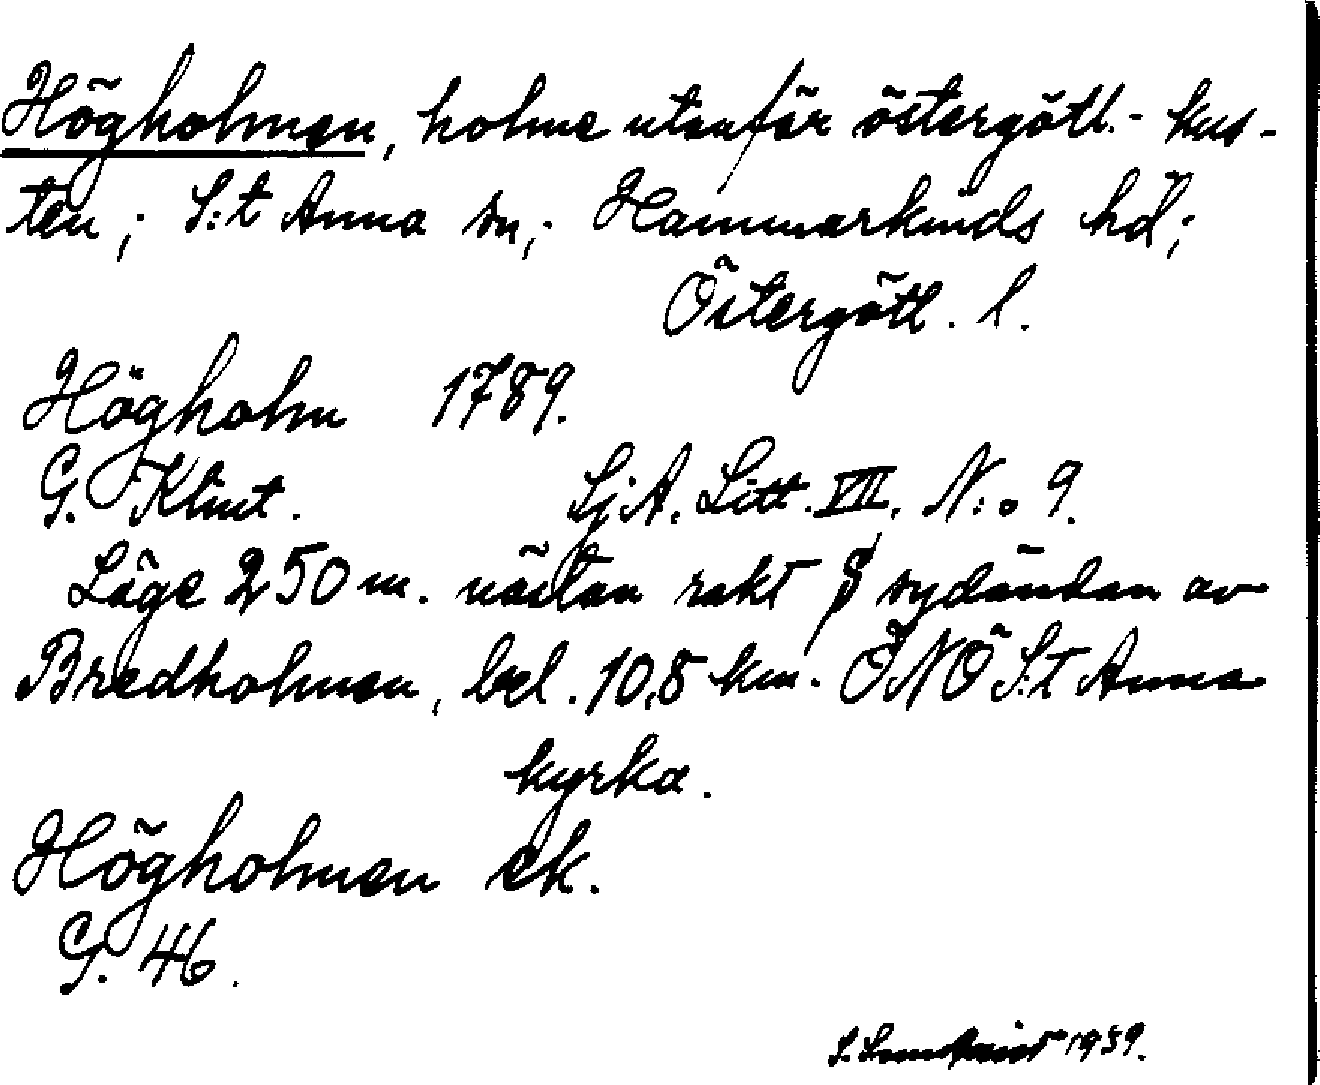 Högholmen, holme utanför östergötl.- kus-
ten; S:t Anna sn,; Hammarkinds hd;
Östergötl. l.
Högholm 1789.
G. Klint. Sj.A. Litt. VII. N:o 9.
Läge 250 m. nästan rakt S sydändan av
Bredholmen, bel. 10,8 km. ÖNÖ S:t Anna
kyrka.
Högholmen ek.
G. 46.
S. 1939.